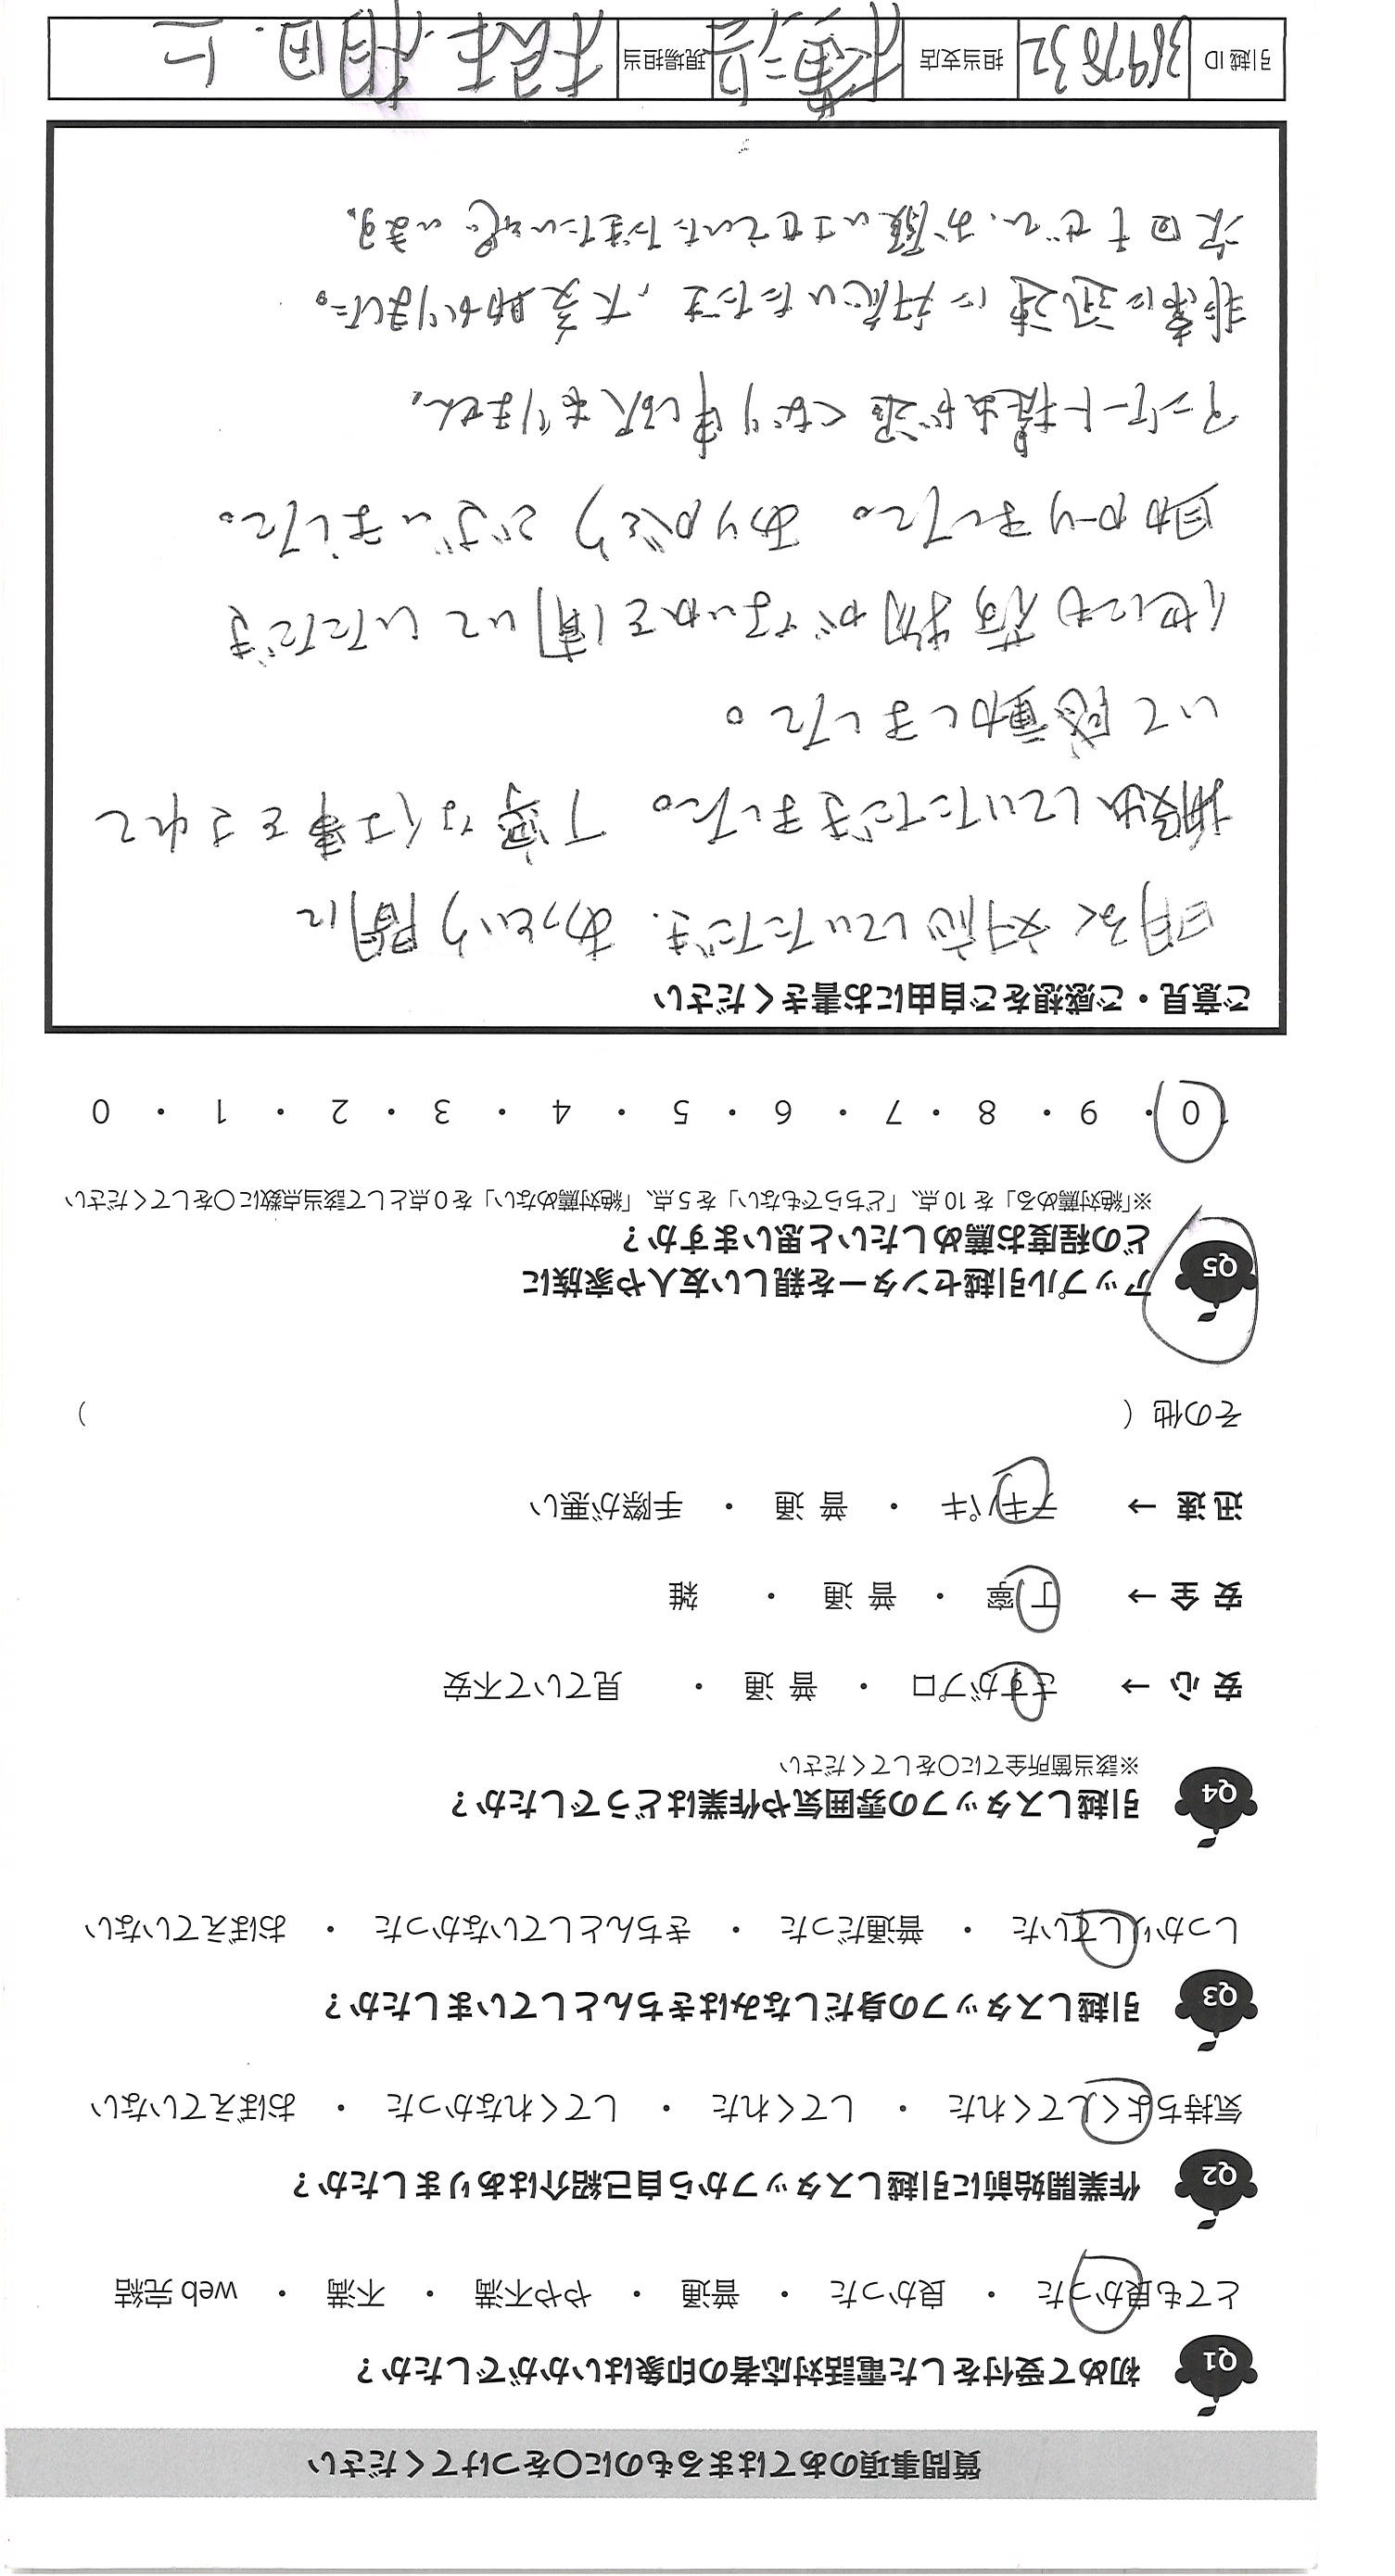 質問事項のあてはまるものに〇をつけてください
Q1 初めて受付をした電話対応者の印象はいかがでしたか？
とても良かった ・ 良かった ・ 普通 ・ やや不満 ・ 不満 ・ web 完結
Q2 作業開始前に引越しスタッフから自己紹介はありましたか？
気持ちよくしてくれた ・ してくれた ・ してくれなかった ・ おぼえていない
Q3 引越しスタッフの身だしなみはきちんとしていましたか？
しっかりしていた ・ 普通だった ・ きちんとしていなかった ・ おぼえていない
Q4 引越しスタッフの雰囲気や作業はどうでしたか？
※該当箇所全てに〇をしてください
安心 → さすがプロ ・ 普通 ・ 見ていて不安
安全 → 丁寧 ・ 普通 ・ 雑
迅速 → テキパキ ・ 普通 ・ 手際が悪い
その他（ ）
Q5 アップル引越センターを親しい友人や家族に
どの程度お薦めしたいと思いますか？
※「絶対薦める」を 10 点、「どちらでもない」を 5 点、「絶対薦めない」を 0 点として該当点数に〇をしてください
10 ・ 9 ・ 8 ・ 7 ・ 6 ・ 5 ・ 4 ・ 3 ・ 2 ・ 1 ・ 0
ご意見・ご感想をご自由にお書きください
明るく対応していただき、あっという間に
搬出していただきました。 丁寧な仕事をされて
いて感動しました。
他にも荷物がないかと聞いていただき
助かりました。 ありがとうございました。
アンケート提出が遅くなり申し訳ありません。
非常に迅速に対応いただき、大変助かりました。
次回もぜひ、お願いさせていただきたいと思います。
引越 ID 3697832 担当支店 現場担当